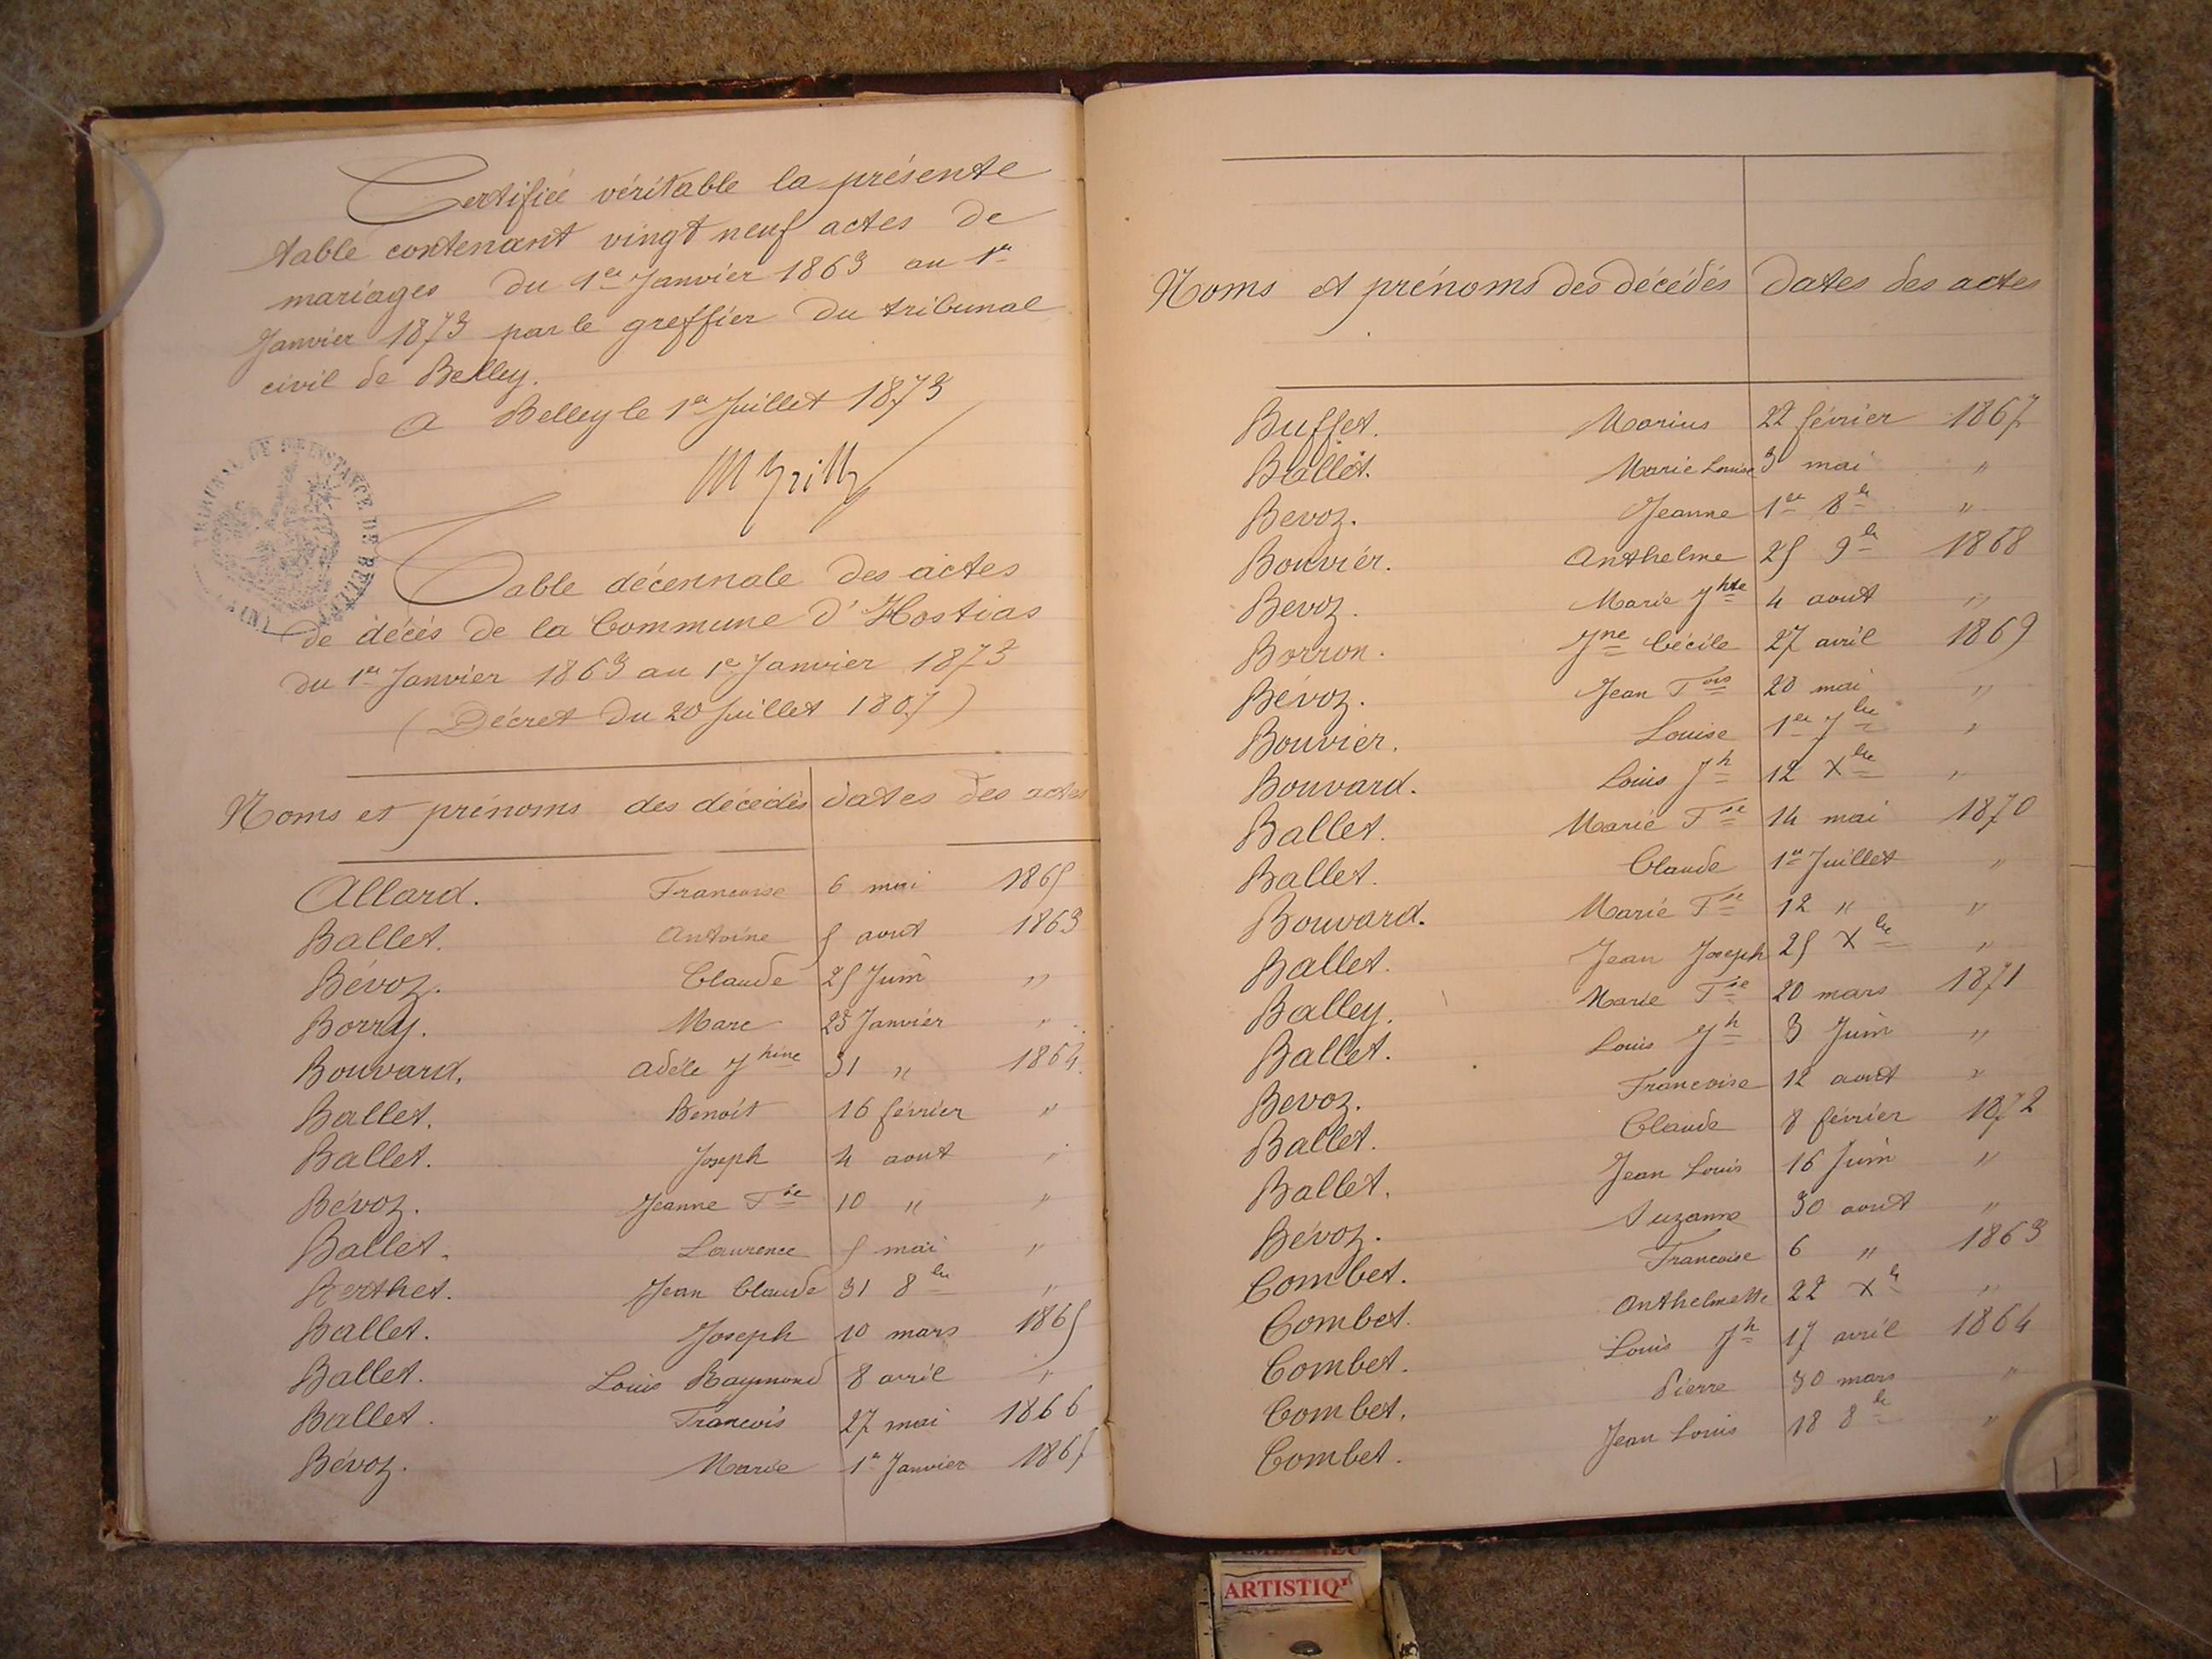 Certifiée véritable la présente
table contenant vingt neuf actes de
mariages du 1er Janvier 1863 au 1er
Janvier 1873 par le greffier du tribunal
civil de Belley.
A Belley le 1er Juillet 1873
TRIBUNAL DE 1RE INSTANCE DE BELLEY (AIN)
Table décennale des actes
de décès de la Commune d'Hostias
du 1er Janvier 1863 au 1er Janvier 1873
(Décret du 20 Juillet 1807)
Noms et prénoms des décédés dates des actes
Allard. Francoise 6 mai 1865
Ballet. Antoine 5 aout 1863
Bévoz. Claude 25 Juin "
Borry. Marc 23 Janvier "
Bouvard. Adèle Jhine 31 " 1864.
Ballet. Benoit 16 février "
Ballet. Joseph 4 aout "
Bévoz. Jeanne Fse 10 " "
Ballet. Laurence 5 mai "
Berthet. Jean Claude 31 8bre "
Ballet. Joseph 10 mars 1865
Ballet. Louis Raymond 8 avril "
Ballet. Francois 27 mai 1866
Bévoz. Marie 1er Janvier 1867
Noms et prénoms des décédés dates des actes
Buffet. Marius 22 février 1867
Ballet. Marie Louise 3 mai "
Bevoz. Jeanne 1er 8bre "
Bouvier. Anthelme 25 9bre 1868
Bevoz. Marie Jhte 4 aout "
Borron. Jne Cécile 27 avril 1869
Bévoz. Jean Fois 20 mai "
Bouvier. Louise 1er 7bre "
Bouvard. Louis Jh 12 Xbre "
Ballet. Marie Fse 14 mai 1870
Ballet. Claude 1er Juillet "
Bouvard. Marie Fse 12 " "
Ballet. Jean Joseph 25 Xbre "
Balley. Marie Fse 20 mars 1871
Ballet. Louis Jh 3 Juin "
Bevoz. Francoise 12 aout "
Ballet. Claude 8 février 1872
Ballet. Jean Louis 16 Juin "
Bévoz. Suzanne 30 aout "
Combet. Francoise 6 " 1863
Combet. Anthelmette 22 Xbre "
Combet. Louis Jh 17 avril 1864
Combet. Pierre 30 mars "
Combet. Jean Louis 18 8bre "
ARTISTIQ